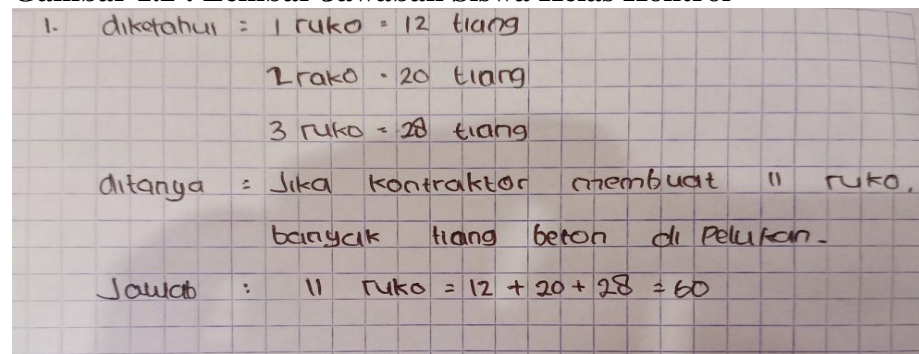 Gambar 4.2 : Lembar Jawaban Siswa Kelas Kontrol
1. diketahui = 1 ruko = 12 tiang
2 rako = 20 tiang
3 ruko = 28 tiang
ditanya = Jika kontraktor membuat 11 ruko,
banyak tiang beton di pelukan.
Jawab : 11 ruko = 12 + 20 + 28 = 60